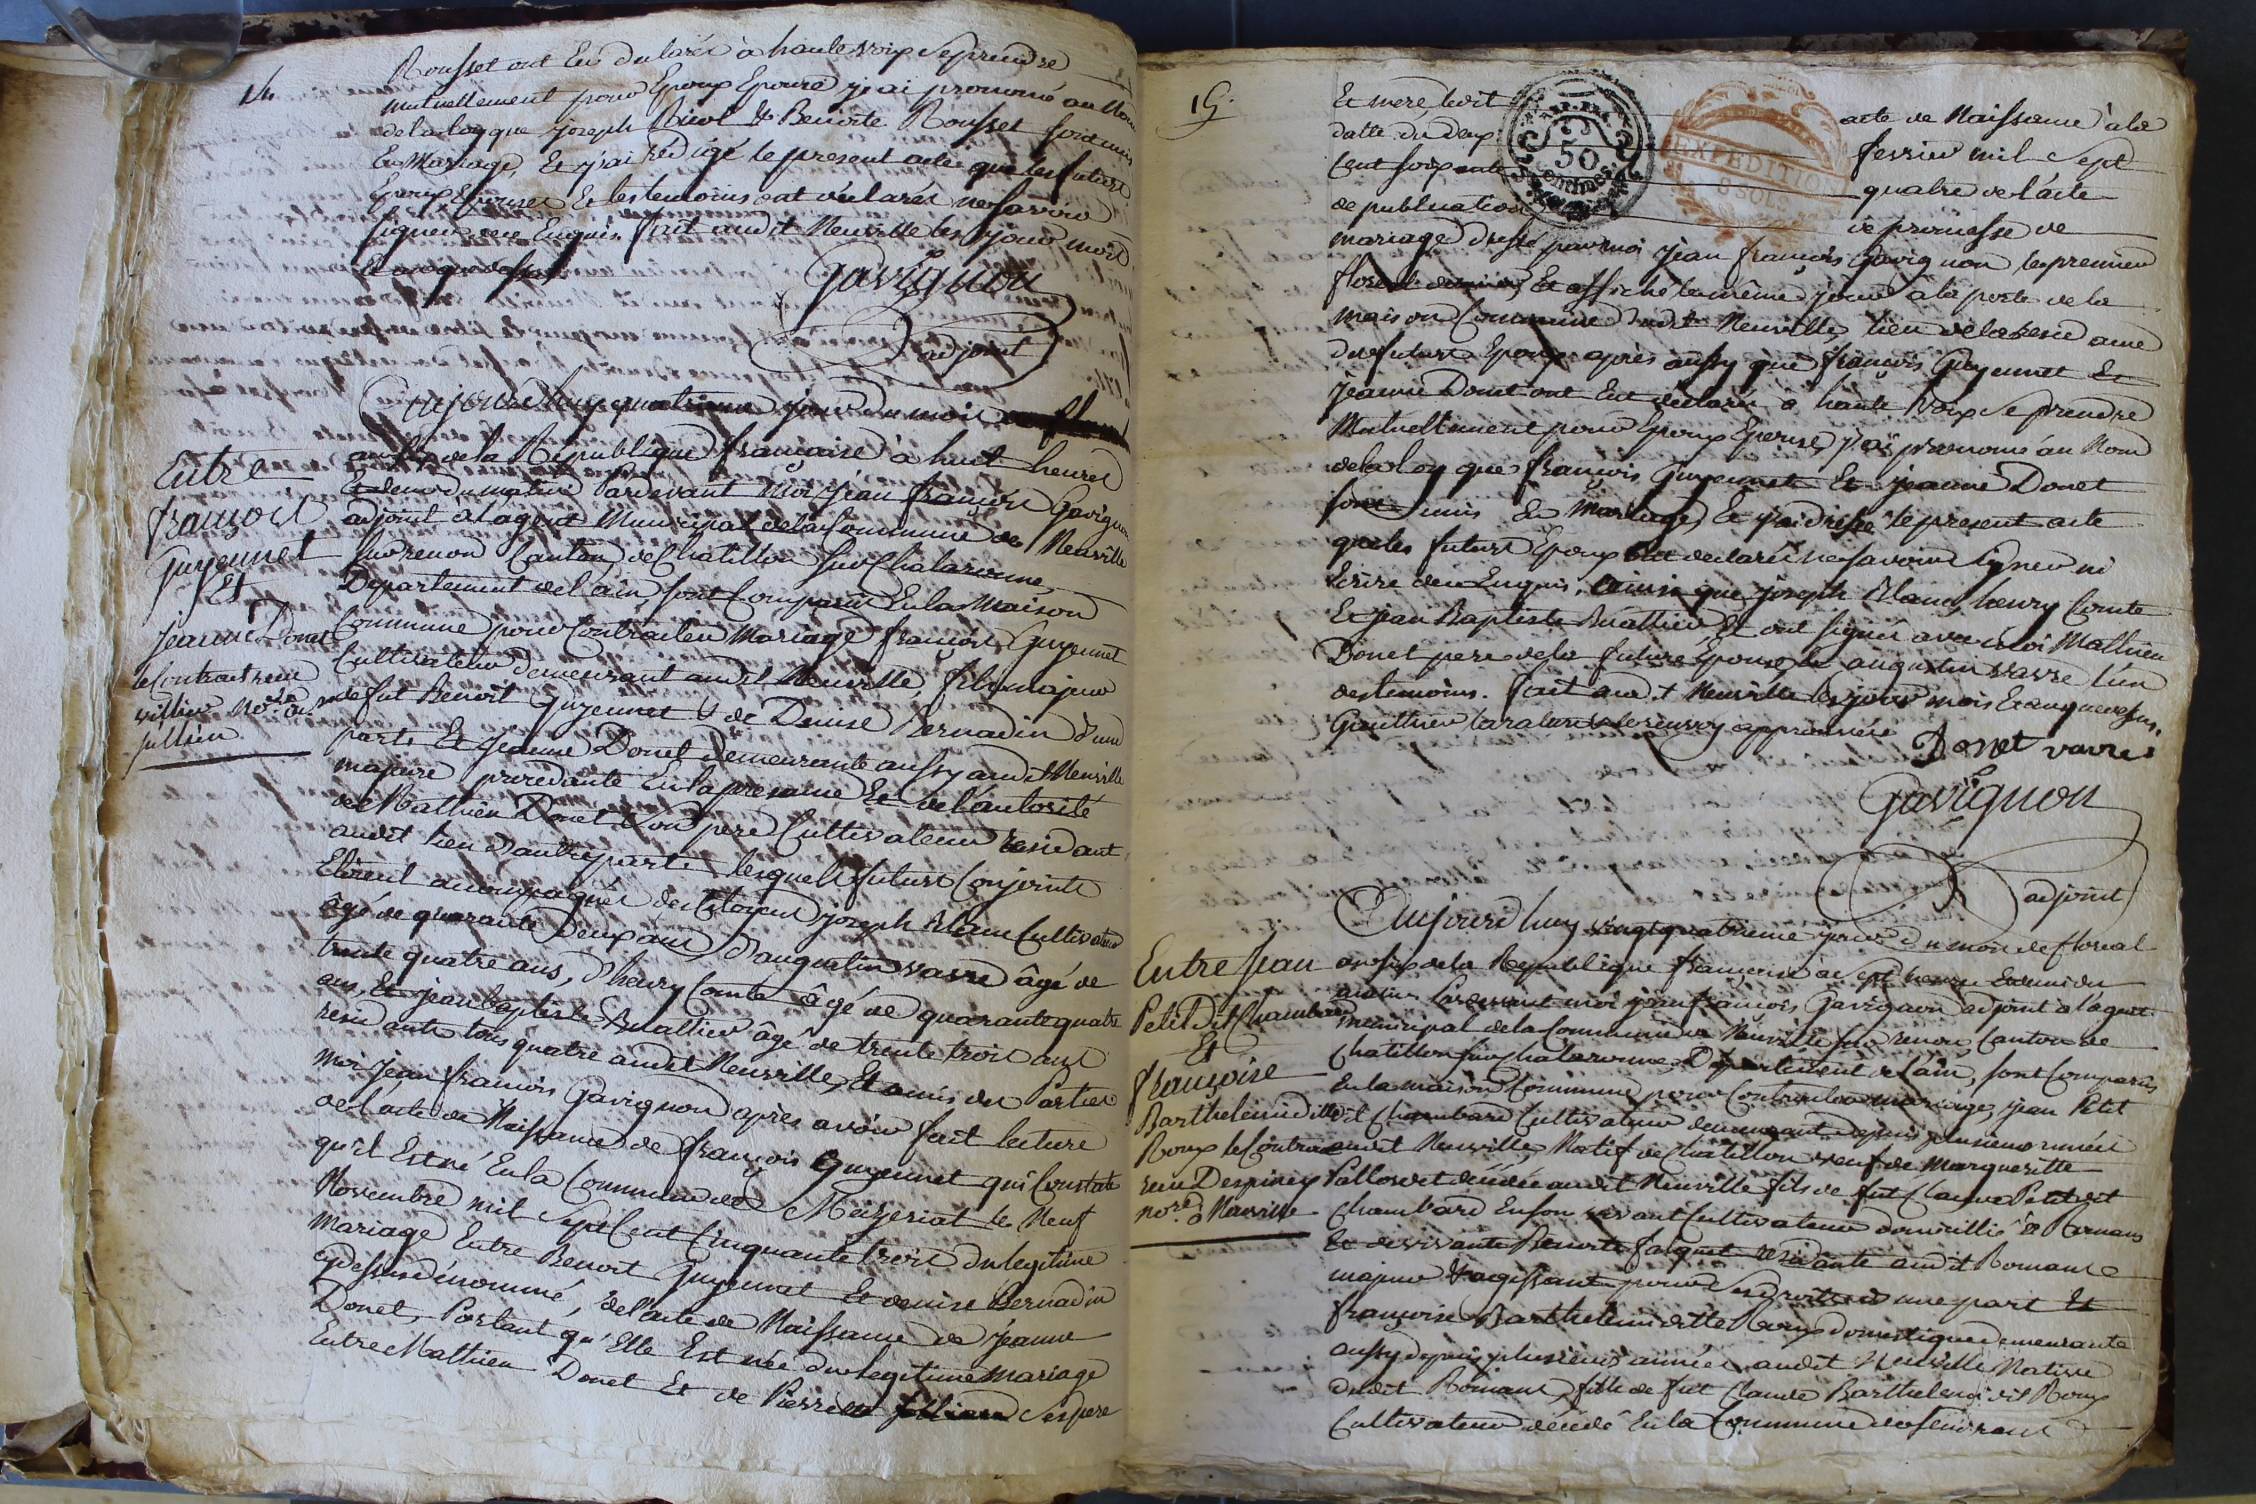 14
Rousset ont Eu declarés à haute voix se prendre
mutuellement pour Epoux Epouse j'ai prononcé au Nom
de la loy que joseph Ricol & Benoite Rousset sont unis
En Mariage, Et j'ai redigé le present acte que les futurs
Epoux Epouses & les temoins ont déclarés ne savoir
signer de ce Enquis. fait audit Neuville les jour mois
Et an que dessus
Gavignon
adjoint
Entre
françois
Guyennet
Et
jeanne Donet
le Contrat reçu
not.re a
jullien
Aujourd'huy quatrieme jour du mois
an six de la République française à huit heures
Et demi du matin Pardevant Moi Jean françois Gavignon
adjoint a l'agent Municipal de la Commune de Neuville
sur renon Canton de Chatillon sur Chalaronne
Departement de l'ain, sont Comparus En la Maison
Commune pour Contracter Mariage françois Guyennet
Cultivateur demeurant audit Neuville, fils majeur
de fut Benoit Guyennet & de Denise Bernadin d'une
part, Et Jeanne Donet demeurante aussy audit Neuville
majeure procedante En la presance Et de l'autorité
de Mathieu Donet son pere Cultivateur residant
audit lieu d'autre part. lesquels futurs Conjoints
Etoient accompagnés des Citoyens joseph Blanc Cultivateur
âgé de quarante Deux ans, d'augustin vavre âgé de
trente quatre ans, d'henry Comte âgé de quarante quatre
ans, Et jean baptiste Buattier âgé de trente trois ans
residants tous quatre audit Neuville, Et amis des Parties
Moi Jean françois Gavignon après avoir fait lecture
de l'acte de Naissance de françois Guyennet qui Constate
qu'il Est né En la Commune de Mezeriat le Neuf
Novembre mil Sept Cent Cinquante trois du legitime
mariage Entre Benoit Guyennet Et denise Bernadin
cy dessus dénommé, de l'acte de Naissance de jeanne
Donet, Portant qu'Elle Est née du legitime mariage
Entre Mathieu Donet Et de Pierrette ses pere
15.
Et mere, acte de Naissance à la
datte du deux fevrier mil Sept
Cent soixante quatre de l'acte
de publication de promesse de
mariage dressé par moi jean françois Gavignon le premier
floreal dernier, Et affiché le même jour à la porte de la
maison Commune dudit Neuville, lieu de la residance
des futurs Epoux après aussy que françois Guyennet Et
Jeanne Donet ont Eut declarés à haute voix se prendre
Mutuellement pour Epoux Epouse, j'ai prononcé au Nom
de la loy que françois Guyennet Et jeanne Donet
sont unis En Mariage, Et j'ai dressé le present acte
que les futurs Epoux ont declarés ne savoir signer ni
Ecrire de ce Enquis, ainsi que joseph Blanc, henry Comte
Et jean Baptiste Buattier Et ont signés avec moi Mathieu
Donet pere de la future Epouse, & augustin vavre l'un
des temoins. fait audit Neuville les jour mois & an que dessus.
approuvée
Donet vavre
Gavignon
adjoint
Entre Jean
Petit Dit Chambard
Et
françoise
Barthelemi ditte
Roux le Contrat
reçu Despiney
no.re à Neuville
50
centimes
EXPEDITION
Aujourd'huy vingt quatrieme jour du mois de floreal
an six de la Republique françoise à sept heures Et demi du
matin Pardevant moi jean françois Gavignon adjoint a l'agent
municipal de la Commune de Neuville sur renon Canton de
Chatillon sur Chalaronne, Departement de l'ain, sont Comparus
En la maison Commune pour Contracter mariage, jean Petit
dit Chambard Cultivateur demeurant depuis plusieurs années
audit Neuville, Natif de Chatillon veuf de Marguerite
decédée audit Neuville fils de fut Claude Petit dit
Chambard En son vivant Cultivateur domicillié à Romans
Et de vivante Benoite residante audit Romans
majeur & agissant pour ses droits d'une part Et
françoise Barthelemi ditte Roux domestique demeurante
aussy depuis plusieurs années audit Neuville Native
dudit Romans, fille de fut Claude Barthelemi dit Roux
Cultivateur décédé En la Commune de